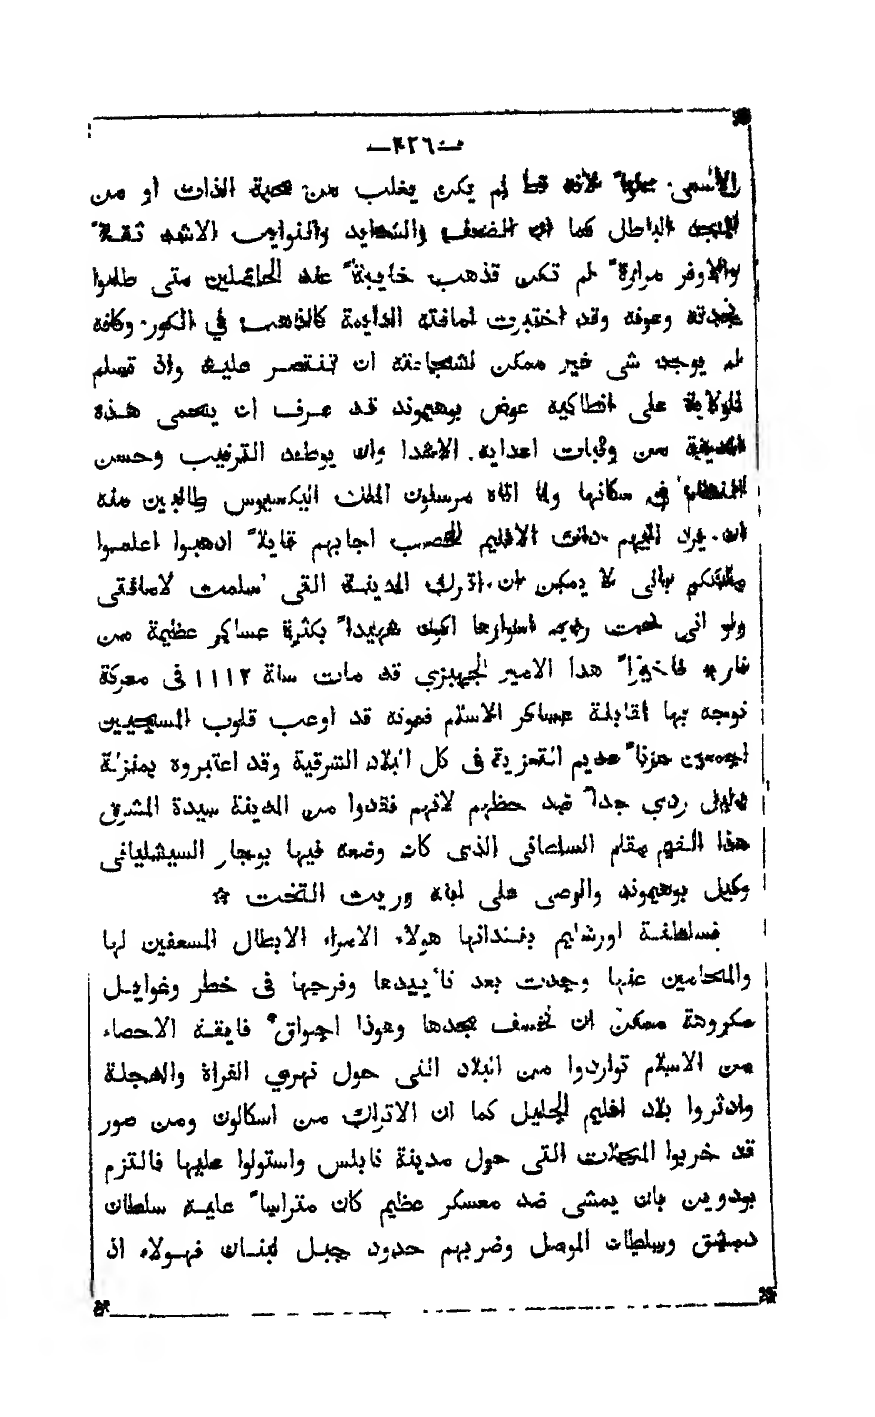 —٤٢٦—
لانه قط لم يكن يغلب من محبة الذات او من
الباطل كما ان الضعف والشدايد والنوايب الاشد ثقلاً
والاوفر مرارة لم تكن تذهب خايبةً عند الحاصلين متى طلبوا
نجدته وعونه وقد اختبرت امانته الدايمة كالذهب في الكور. وكانه
لم يوجد شى غير ممكن لشجاعته ان تنتصر عليه واذ تسلم
الولاية على انطاكيه عوض بوهيموند قد عرف ان يحمى هذه
المدينة من وثبات اعدايه الاشدا وان يوطد الترتيب وحسن
النظام فى سكانها ولما اتاه مرسلون الملك اليكسيوس طالبين منه
ان يرد اليهم ذلك الاقليم الخصب اجابهم قايلاً اذهبوا اعلموا
ملككم بانى لا يمكن ان اترك المدينة التى سلمت لامانتى
ولو انى تحت اسوارها اكون شهيداً بكثرة عساكر عظيمة من
فارس فاخيراً هذا الامير الجهبزي قد مات سنة ١١١٢ فى معركة
توجه بها لمقابلة عساكر الاسلام فموته قد اوعب قلوب المسيحيين
اجمعين حزناً عديم التعزية فى كل البلاد الشرقية وقد اعتبروه بمنزلة
دليل ردي جداً ضد حظهم لانهم فقدوا من المدينة سيدة المشرق
هذا الفهم مقام السلطانى الذى كان وضعه فيها بوجار السيشليانى
وكيل بوهيموند والوصى على ابنه وريث التخت ☆
فسلطنة اورشليم بفقدانها هولاء الامراء الابطال المسعفين لها
والمحامين عنها وجدت بعد تاييدها وفرحها فى خطر وغوايل
مكروهة ممكن ان تخسف مجدها وهوذا اجواق فايقة الاحصاء
من الاسلام تواردوا من البلاد التى حول نهري الفراة والدجلة
وادثروا بلاد اقليم الجليل كما ان الاتراك من اسكالون ومن صور
قد خربوا المحلات التى حول مدينة نابلس واستولوا عليها فالتزم
بودوين بان يمشى ضد معسكر عظيم كان متراسا عليه سلطان
دمشق وسلطان الموصل وضربهم حدود جبل لبنان فهولاء اذ